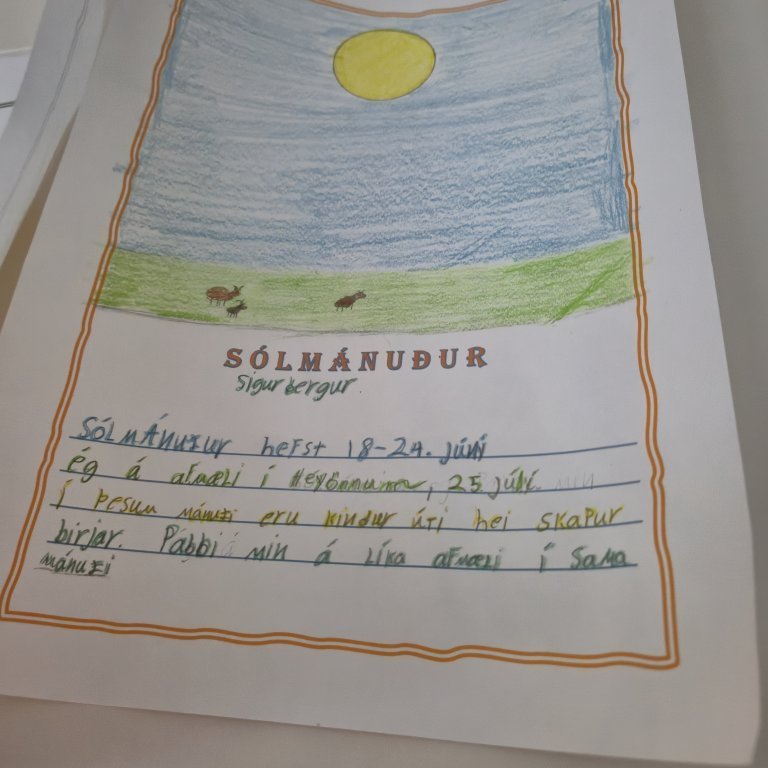 SÓLMÁNUÐUR
Sigurbergur.
SÓLMÁNUÐUR hefst 18-24. júní
ég á afmæli í Heyönnum, 25 júlí.
Í þesum mánuði eru kindur úti hei skapur
birjar. Pabbi mín á líka afmæli í sama
mánuði